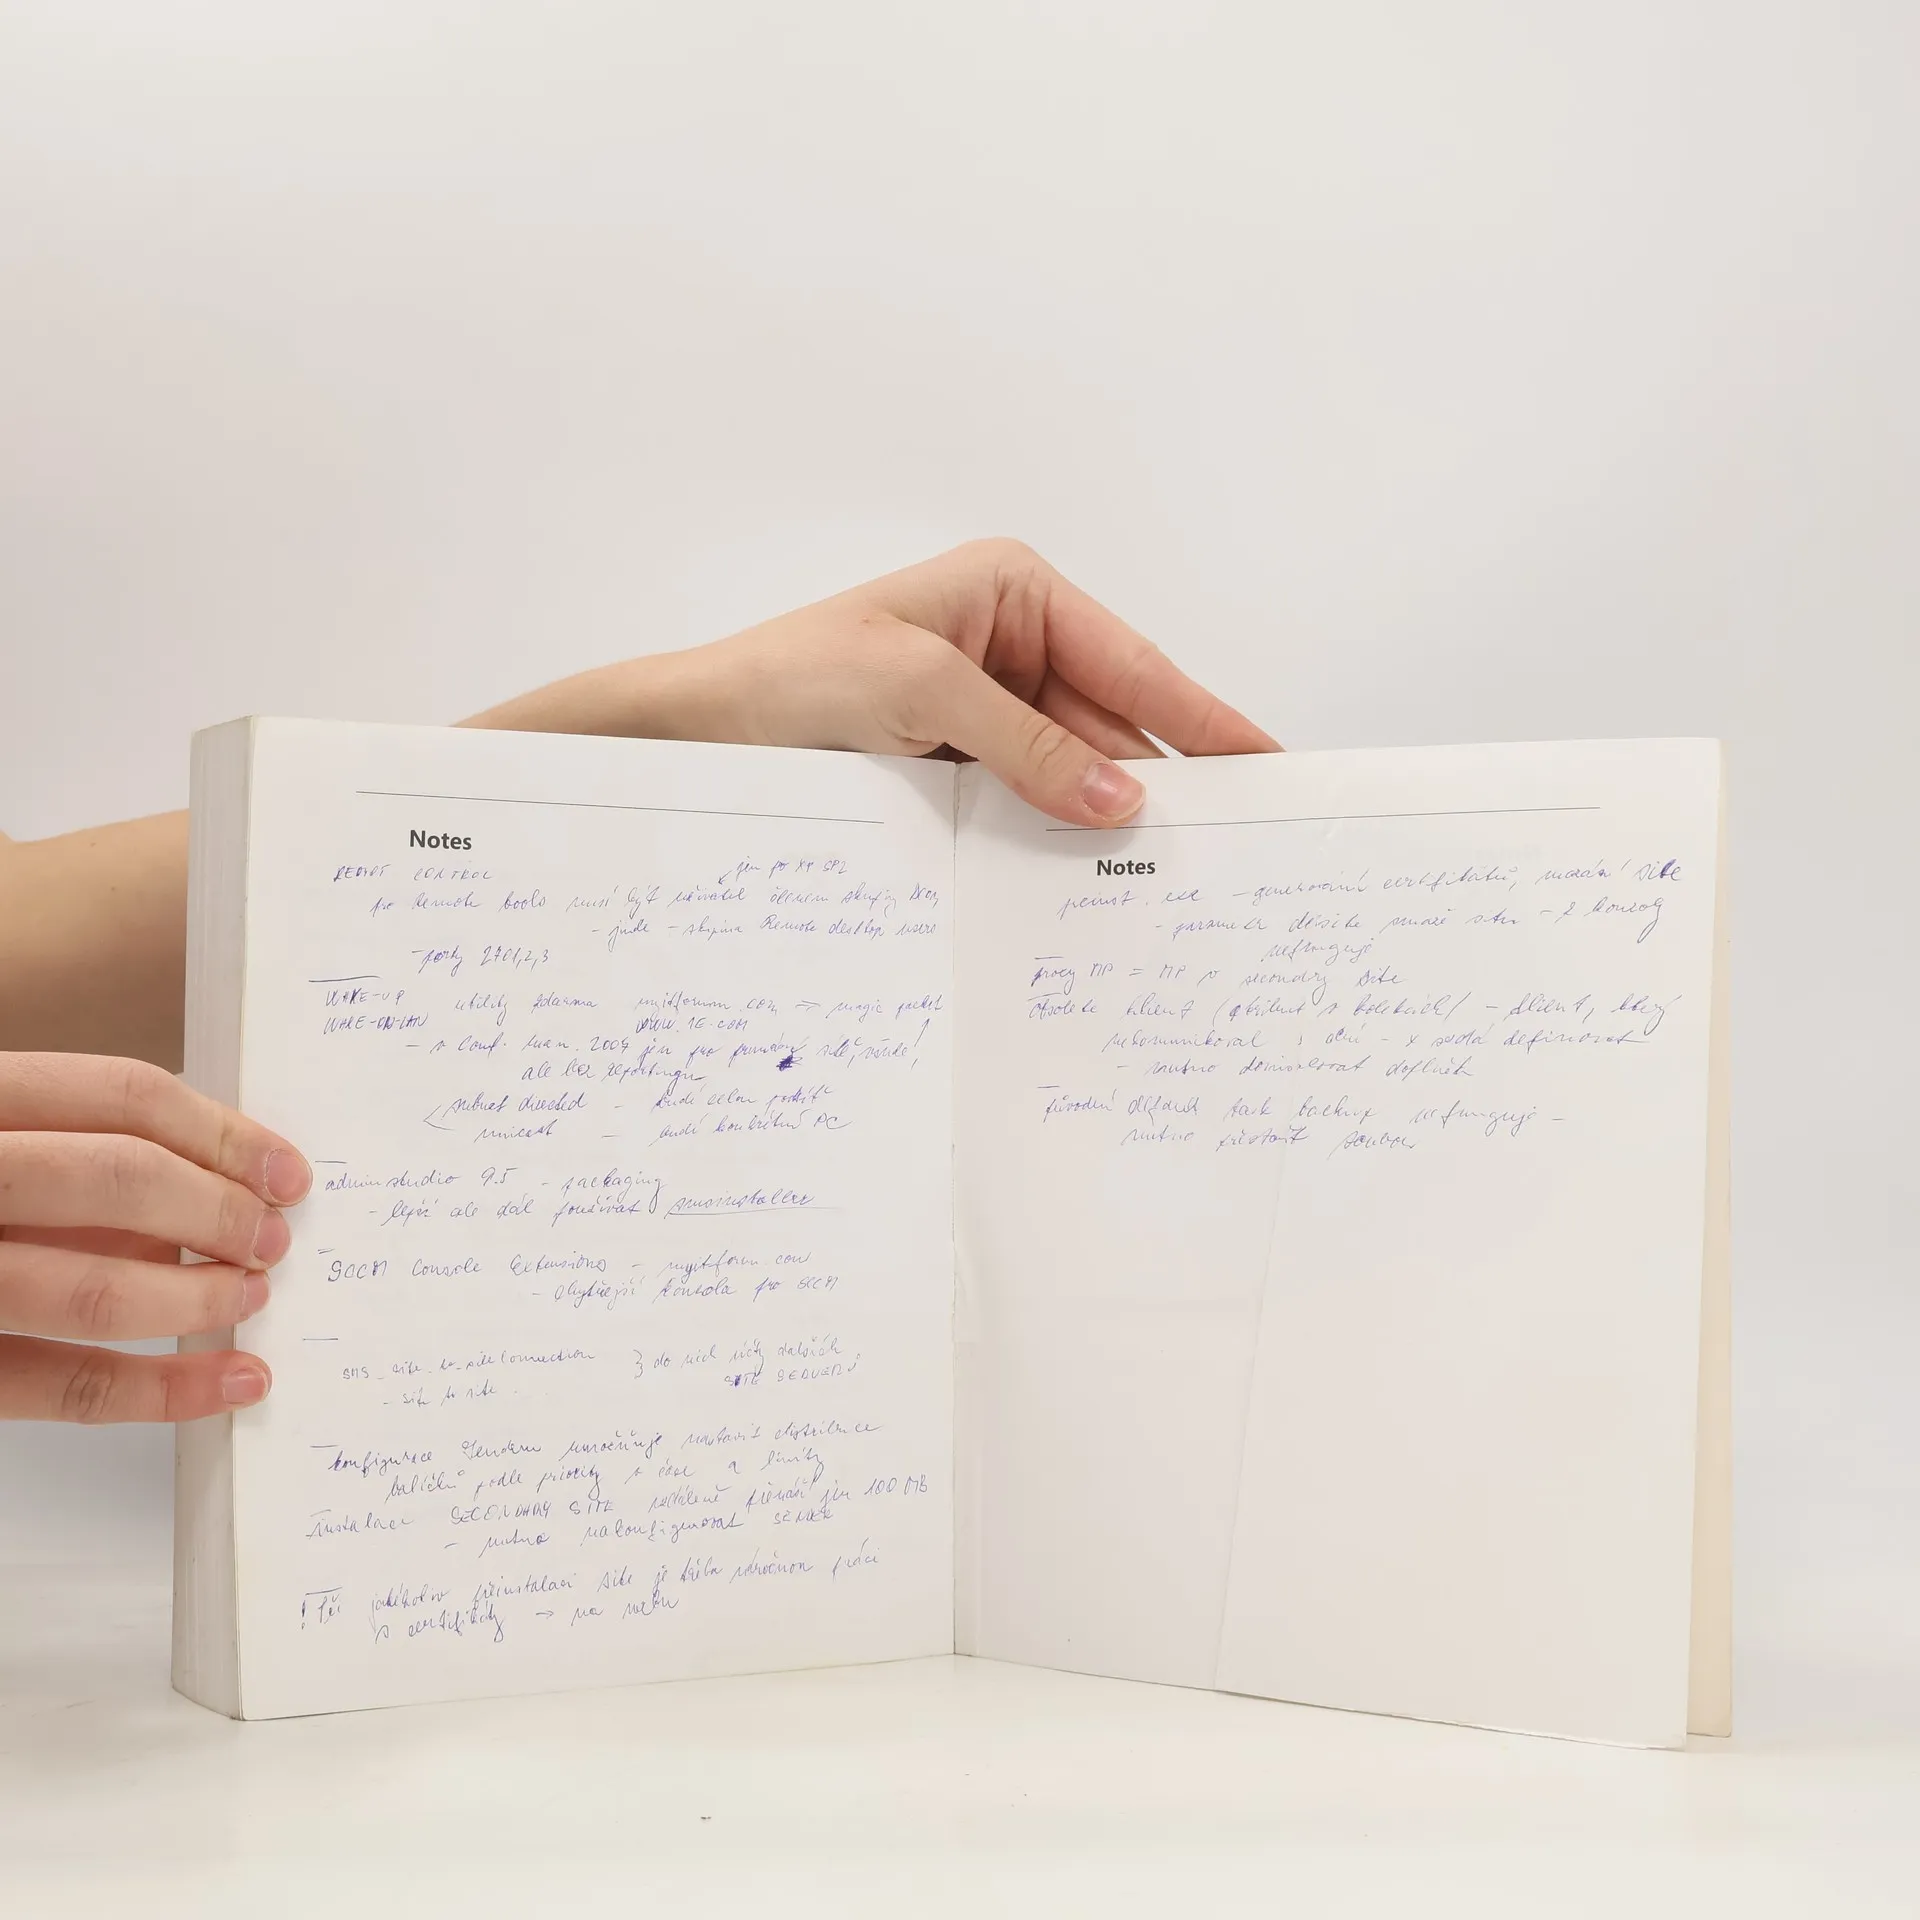 Notes
REMOT CONTROL
jen po XP SP2
pro Remote tools musí být uživatel členem skupiny
- jinde - skupina Remote desktop users
- porty 2701,2,3
WAKE-UP utility zdarma myitforum.com => magic packet
WAKE-ON-LAN www.1E.COM
- v Conf. man. 2007 jen pro síť,
ale bez reportingu
subnet directed - budí celou
unicast - budí konkrétní PC
admin studio 9.5 - packaging
- lepší ale dál používat smsinstaller
SCCM Console Extensions - myitforum.com
- chytřejší konzola pro SCCM
SMS_site_to_siteConnection } do nich účty dalších
- site to site SITE SERVERŮ
konfigurace Senderu umožňuje nastavit distribuce
balíčků podle priority v čase a limity
instalace SECONDARY SITE vzdáleně přenáší jen 100 MB
- nutno nakonfigurovat SENDER
! Při jakékoliv přeinstalaci site je třeba práci
s certifikáty → na webu
Notes
preinst.exe - generování certifikátů, mazání site
- parametr delsite smaže site - z konzoly
nefunguje
proxy MP = MP v secondary site
obsolete klient (atribut v kolekcích) - klient, který
nekomunikoval s - x se dá definovat
- nutno doinstalovat doplněk
původní default task backup nefunguje -
nutno přestavit soubor